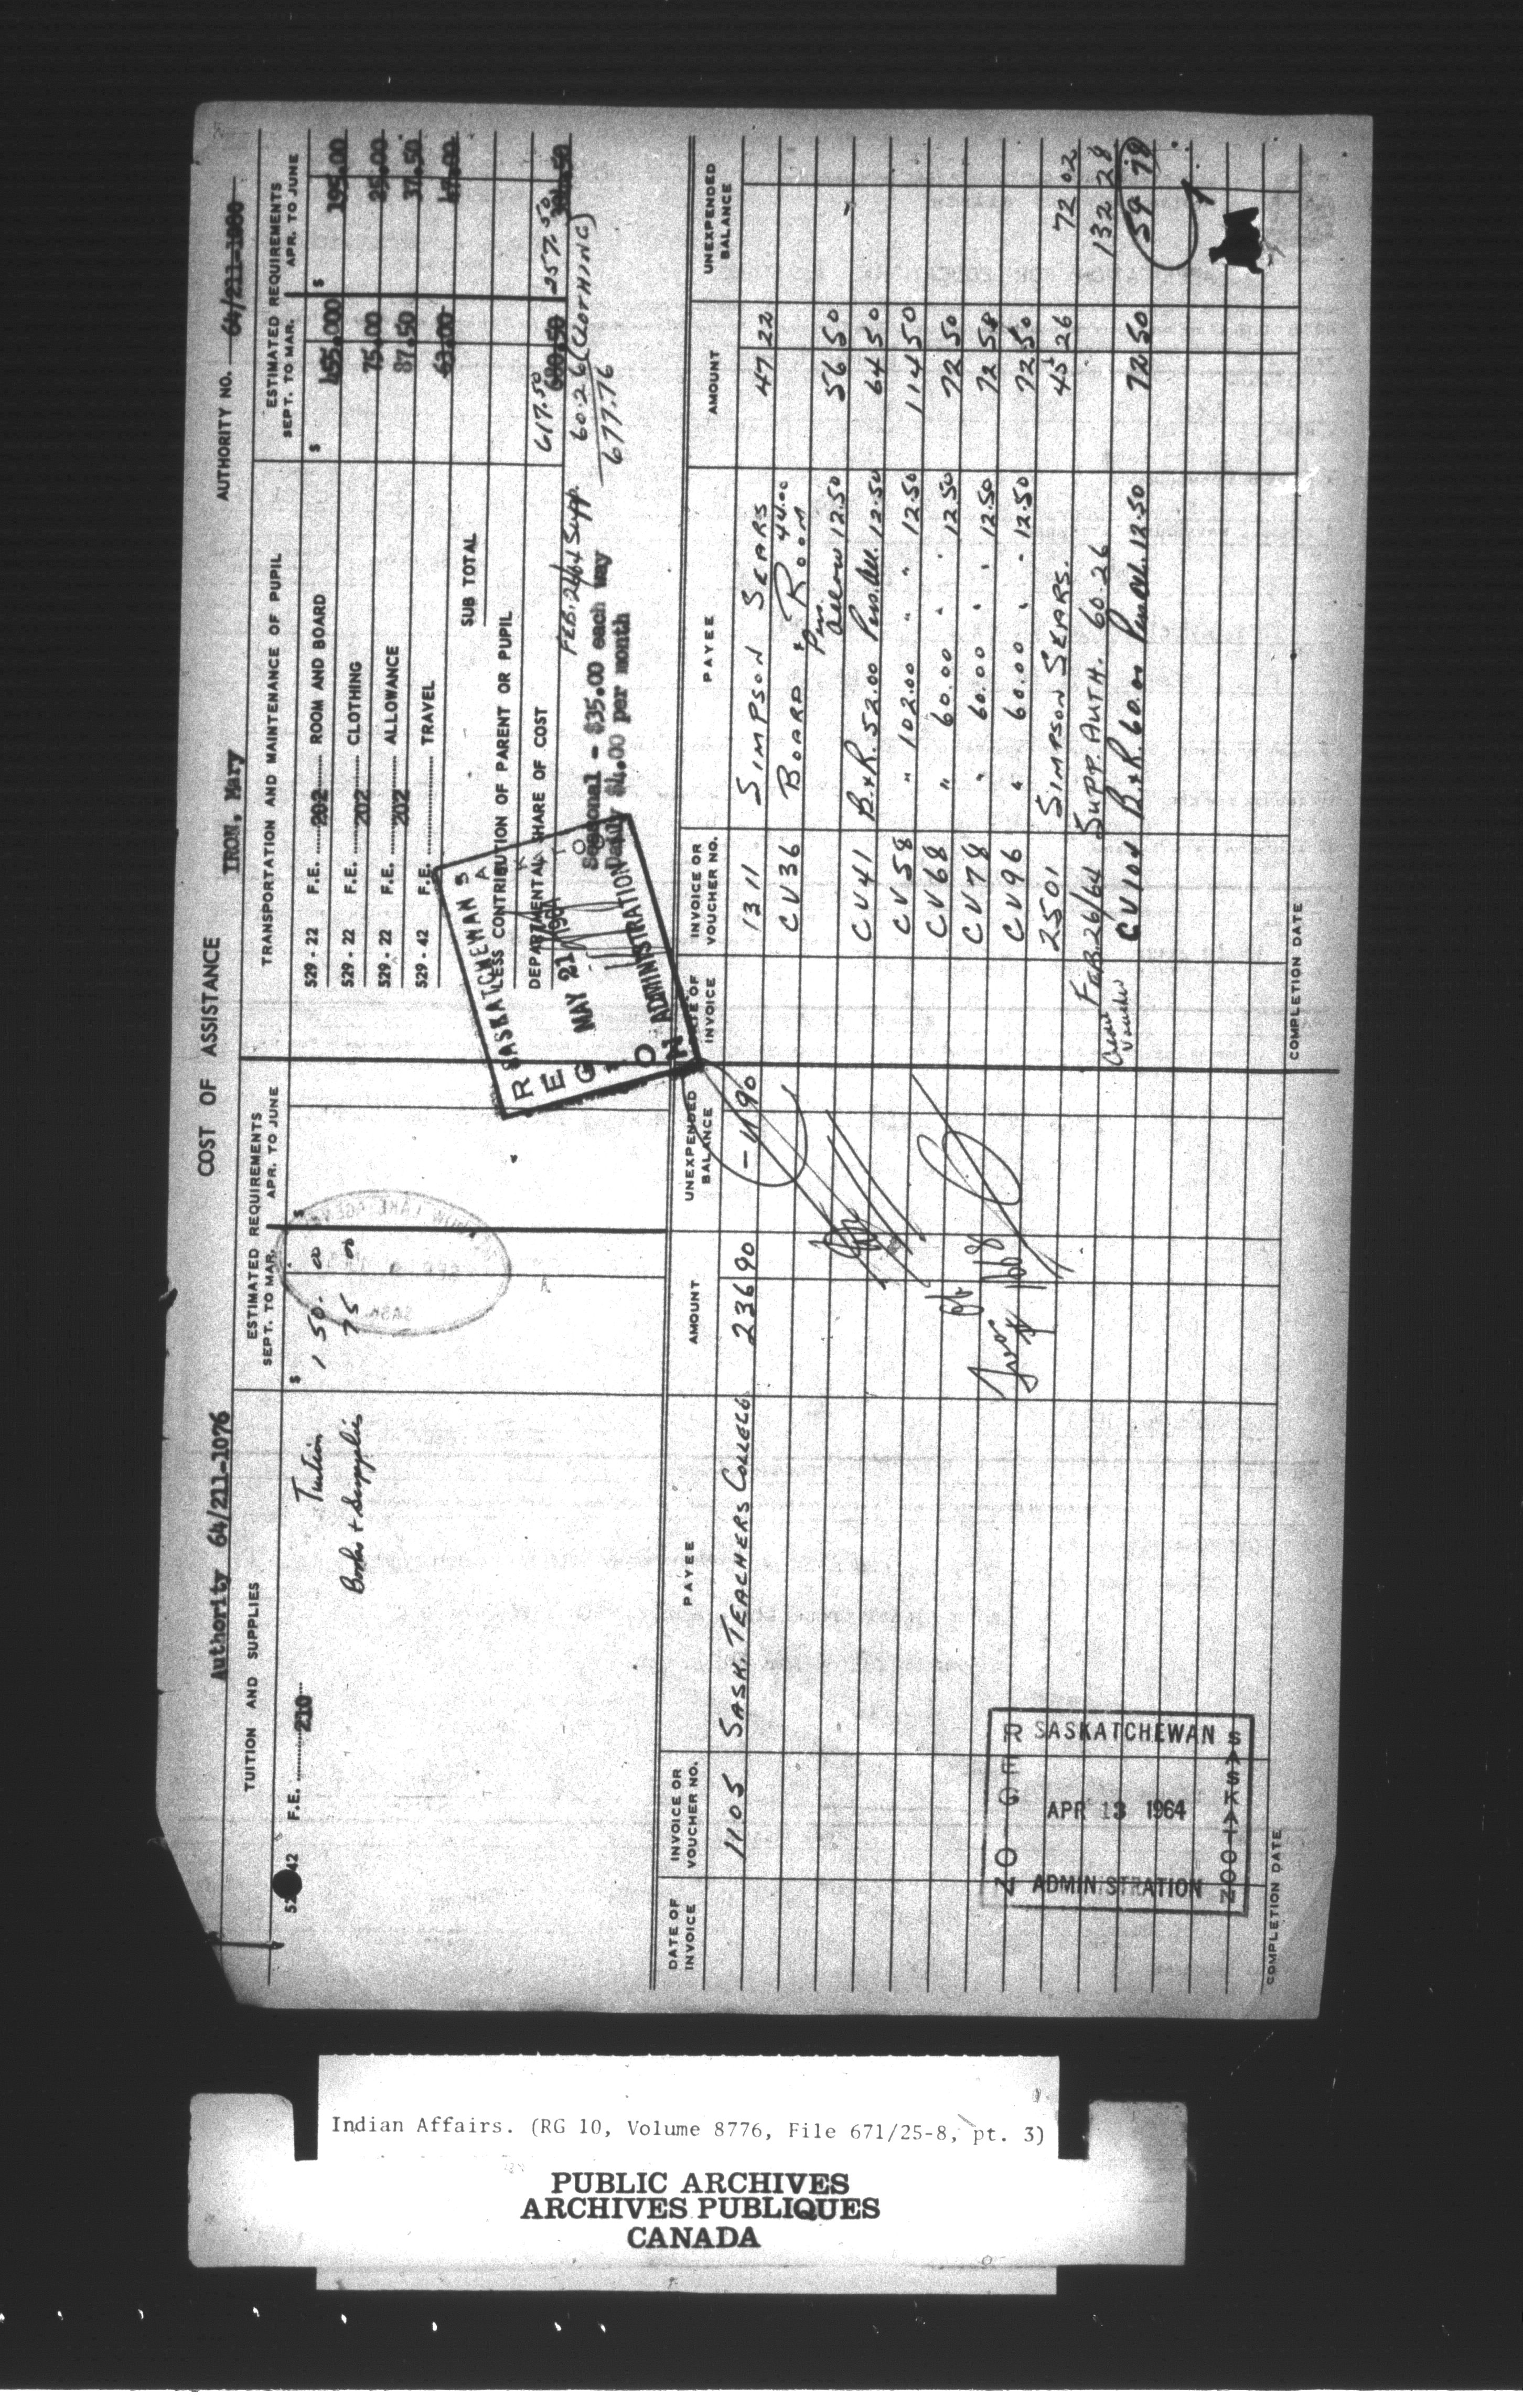 COST OF ASSISTANCE
Authority 64/211-1076
IRON, Mary
AUTHORITY NO. 64/211-1080
TUITION AND SUPPLIES
ESTIMATED REQUIREMENTS
SEPT. TO MAR. APR. TO JUNE
$ $
42 F.E. 210
Tuition 150.00
Books + Supplies 75 00
TRANSPORTATION AND MAINTENANCE OF PUPIL
ESTIMATED REQUIREMENTS
SEPT. TO MAR. APR. TO JUNE
$ $
529-22 F.E. 202 ROOM AND BOARD 455.000 195.00
529-22 F.E. 202 CLOTHING 75.00 25.00
529-22 F.E. 202 ALLOWANCE 87.50 37.50
529-42 F.E. TRAVEL 63.00
SUB TOTAL
LESS CONTRIBUTION OF PARENT OR PUPIL
DEPARTMENTAL SHARE OF COST 617.50 257.50
680.50
FEB. 26/64 Supp. 60.26 (CLOTHING)
677.76
Seasonal - $35.00 each way
Daily $4.00 per month
SASKATCHEWAN
REGION
MAY 21 1964
ADMINISTRATION
DATE OF INVOICE
INVOICE OR VOUCHER NO.
PAYEE
AMOUNT
UNEXPENDED BALANCE
1105 SASK. TEACHERS COLLEGE 236 90 -11 90
SASKATCHEWAN
REGION
APR 13 1964
ADMINISTRATION
SASKATOON
COMPLETION DATE
DATE OF INVOICE
INVOICE OR VOUCHER NO.
PAYEE
AMOUNT
UNEXPENDED BALANCE
1311 SIMPSON SEARS 47 22
CV36 BOARD & ROOM 44.00
Pers. Allow 12.50 56 50
CV41 B.&R. 52.00 Pers. All. 12.50 64 50
CV58 " 102.00 " " 12.50 114 50
CV68 " 60.00 " " 12.50 72 50
CV78 " 60.00 " " 12.50 72 50
CV96 " 60.00 " " 12.50 72 50
2501 SIMPSON SEARS. 45 26 72 02
FEB. 26/64 SUPP. AUTH. 60.26 132 28
Credit Voucher CV104 B.&R. 60.00 Pers All. 12.50 72 50 59 78
COMPLETION DATE
Indian Affairs. (RG 10, Volume 8776, File 671/25-8, pt. 3)
PUBLIC ARCHIVES
ARCHIVES PUBLIQUES
CANADA